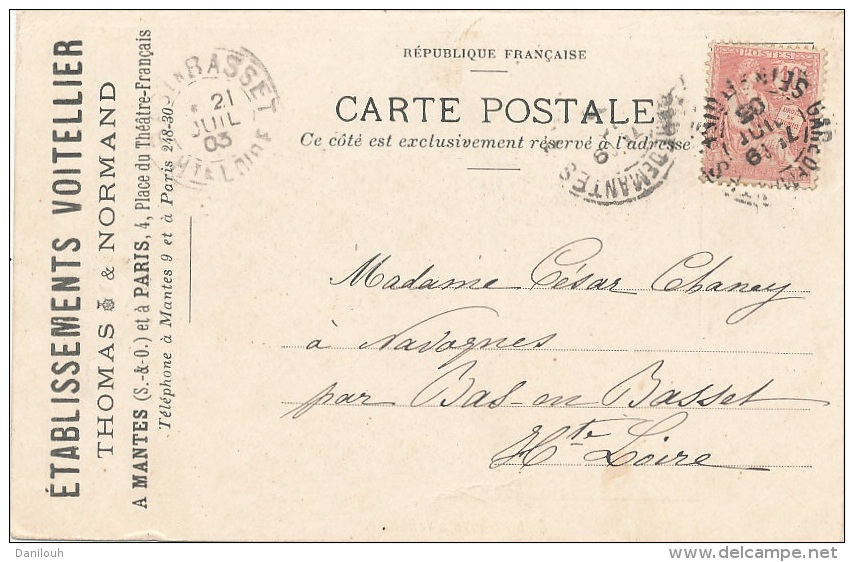 ÉTABLISSEMENTS VOITELLIER
THOMAS & NORMAND
A MANTES (S.-&-O.) et à PARIS, 4, Place du Théâtre-Français
Téléphone à Mantes 9 et à Paris 248-30
BASSET
21
JUIL
03
HTE LOIRE
RÉPUBLIQUE FRANÇAISE
CARTE POSTALE
Ce côté est exclusivement réservé à l'adresse
POSTES
DEMANTES
19
03
Madame César Chaney
à Navognes
par Bas-en Basset
Hte Loire
Danilouh
www.delcampe.net